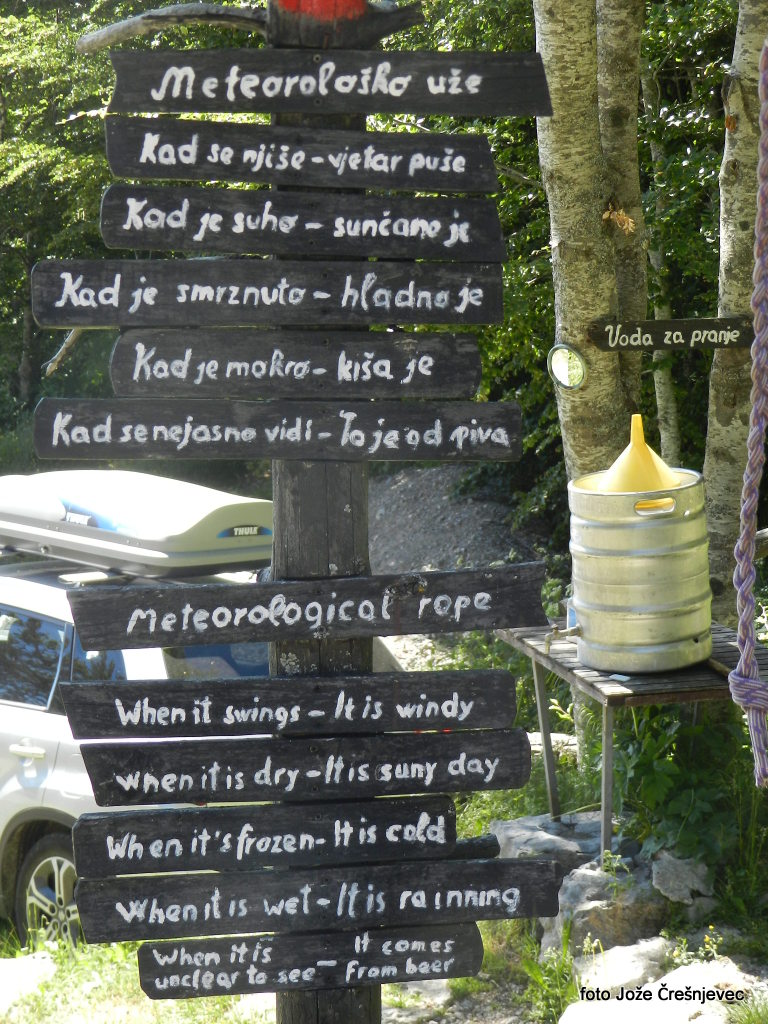 Meteorološko uže
Kad se njiše - vjetar puše
Kad je suho - sunčano je
Kad je smrznuto - hladno je
Kad je mokro - kiša je
Kad se nejasno vidi - To je od piva
Voda za pranje
THULE
Meteorological rope
When it swings - It is windy
When it is dry - It is suny day
When it's frozen - It is cold
When it is wet - It is rainning
When it is It comes
unclear to see - From beer
foto Jože Črešnjevec